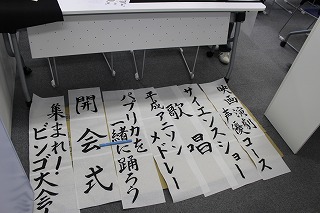 映画演劇コース
声優
サイエンスショー
歌唱
平成アニソン
メドレー
パプリカを
一緒に踊ろう
開会式
集まれ！
ビンゴ大会！